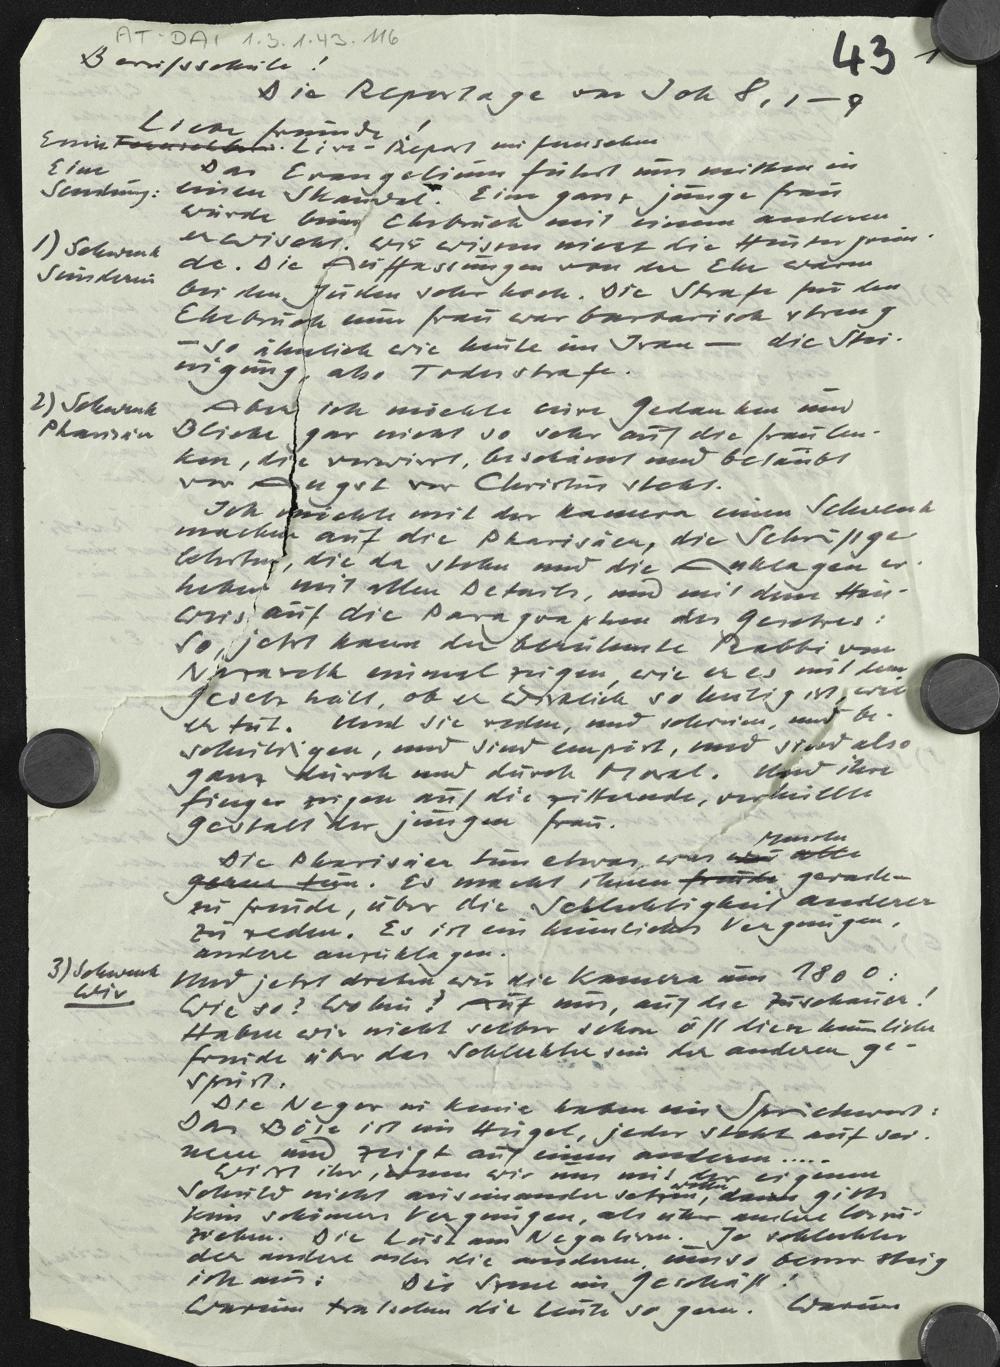 AT-DAI 1.3.1.43.116
43 1
Berufsschule!
Die Reportage von Joh 8, 1-9
Liebe Freunde!
Eine Fernsehen. Live-Report im Fernsehen
Eine
Sendung:
Das Evangelium führt uns mitten in
einen Skandal. Eine ganz junge Frau
wurde beim Ehebruch mit einem anderen
erwischt. Wir wissen nicht die Hintergrün-
1) Schwenk
Sünderin
de. Die Auffassungen von der Ehe waren
bei den Juden sehr hoch. Die Strafe für den
Ehebruch einer Frau war barbarisch streng
- so ähnlich wie heute im Iran - die Stei-
nigung, also Todesstrafe.
2) Schwenk
Pharisäer
Aber ich möchte eure Gedanken und
Blicke gar nicht so sehr auf die Frau len-
ken, die verwirrt, beschämt und betäubt
vor Angst vor Christus steht.
Ich möchte mit der Kamera einen Schwenk
machen auf die Pharisäer, die Schriftge
lehrten, die da stehn und die Anklagen er-
heben mit allen Details, und mit dem Hin-
weis auf die Paragraphen des Gesetzes:
So, jetzt kann der berühmte Rabbi von
Nazareth einmal zeigen, wie er es mit dem
Gesetz hält, ob er wirklich so heilig ist, wie
er tut. Und sie reden, und schreien, und be-
schuldigen, und sind empört, und sind also
ganz durch und durch Moral. Und ihre
Finger zeigen auf die zitternde, verhüllte
Gestalt der jungen Frau.
Die Pharisäer tun etwas, was wir alle Menschen
gerne tun. Es macht ihnen Freude gerade-
zu Freude, über die Schlechtigkeit anderer
zu reden. Es ist ein heimliches Vergnügen,
andere anzuklagen.
3) Schwenk
Wir
Und jetzt drehen wir die Kamera um 180°:
Wieso? Wohin? Auf uns, auf die Zuschauer!
Haben wir nicht selber schon oft diese heimliche
Freude über das Schlechtsein der anderen ge-
spürt.
Die Neger in Kenia haben ein Sprichwort:
Das Böse ist ein Hügel, jeder steht auf sei-
nem und zeigt auf einen anderen.....
Wisst ihr, wenn wir uns mit der eigenen
Schuld nicht auseinander setzen wollen, dann gibts
kein schöneres Vergnügen, als über andere loszu-
ziehen. Die Lust am Negativen. Je schlechter
der andere oder die anderen, umso besser steig
ich aus: Die Szene im Geschäft!
Warum tratschen die Leute so gern. Warum